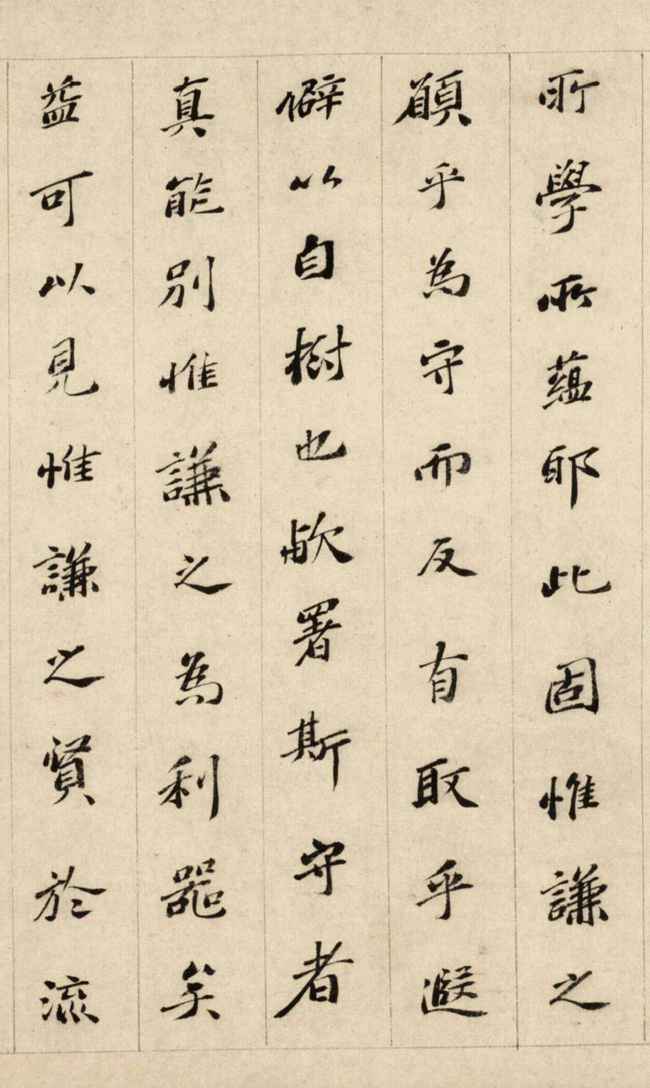 所學所蘊耶此固惟謙之
願乎為守而反有取乎遐
僻以自樹也欤署斯守者
真能別惟謙之為利器矣
益可以見惟謙之賢於流